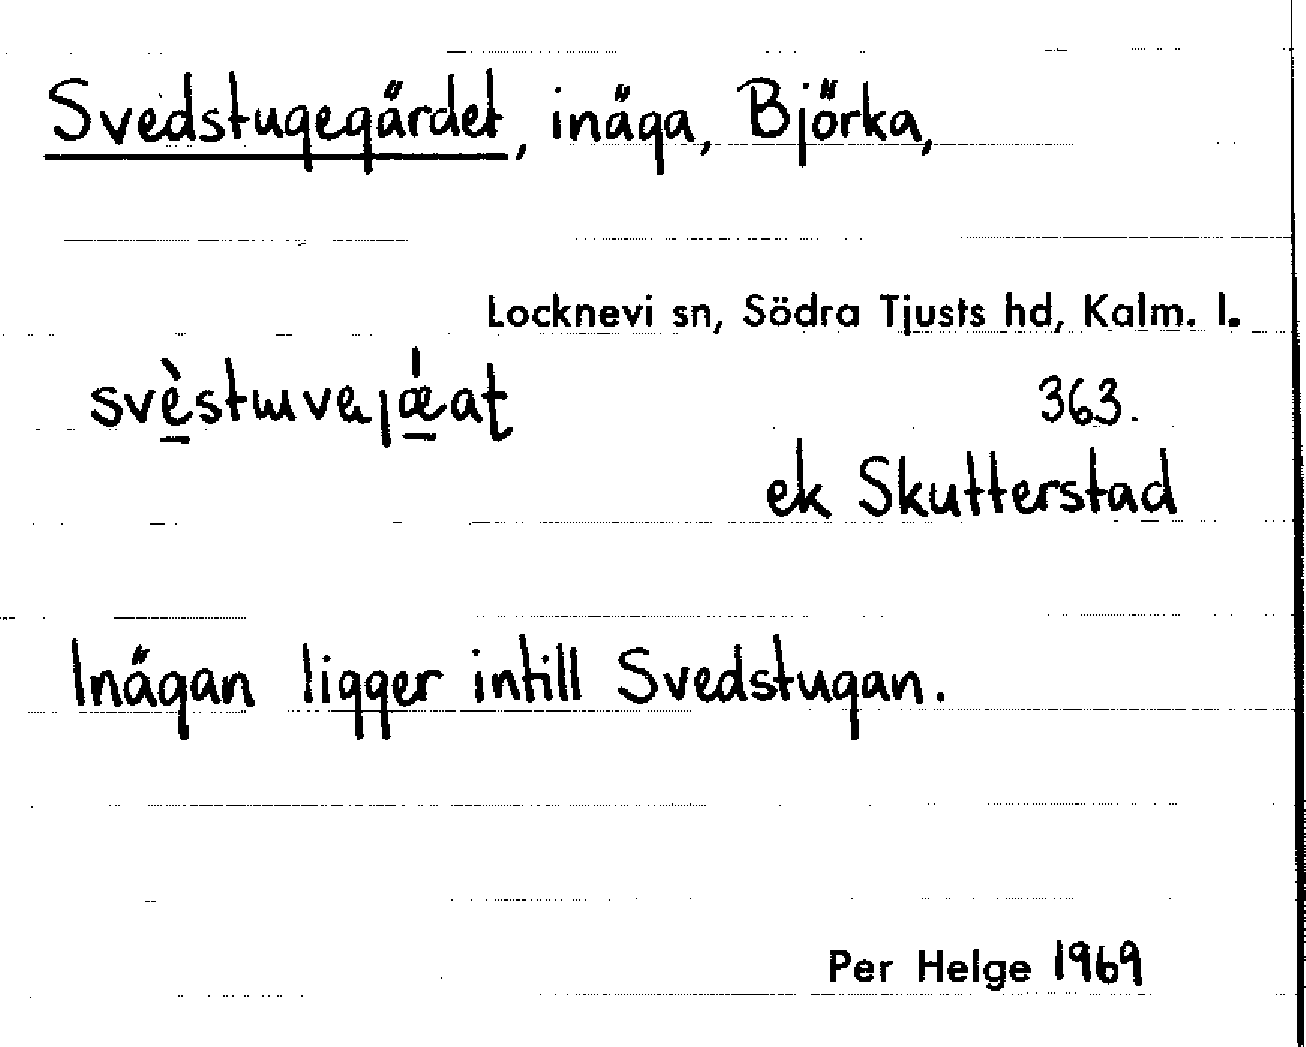 Svedstugegärdet, inäga, Björka,
Locknevi sn, Södra Tjusts hd, Kalm. l.
363.
ek Skutterstad
Inägan ligger intill Svedstugan.
Per Helge 1969